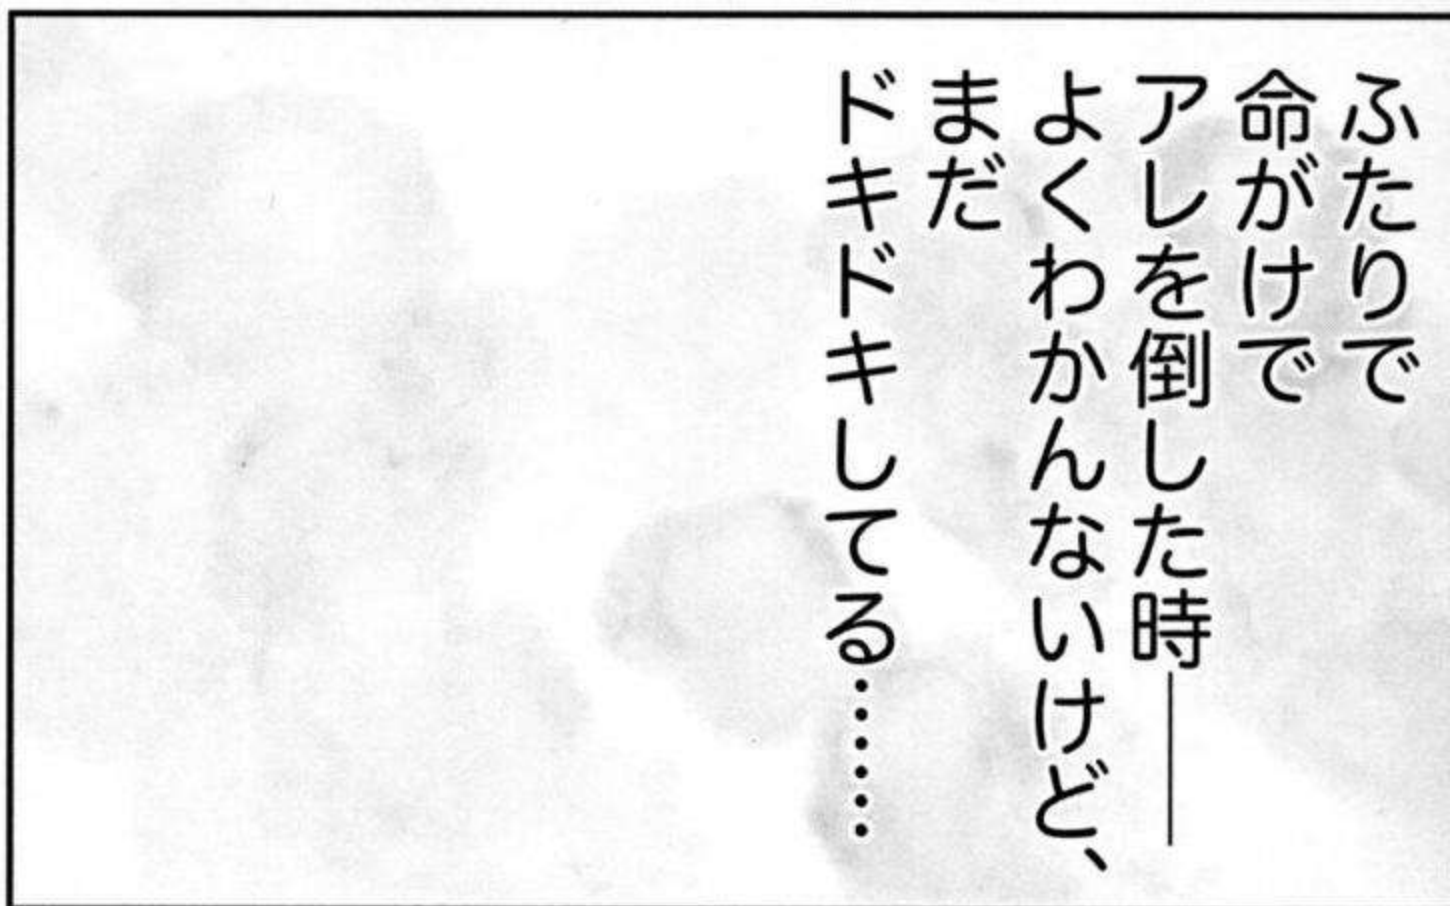 ふたりで
命がけで
アレを倒した時――
よくわかんないけど、
まだ
ドキドキしてる……